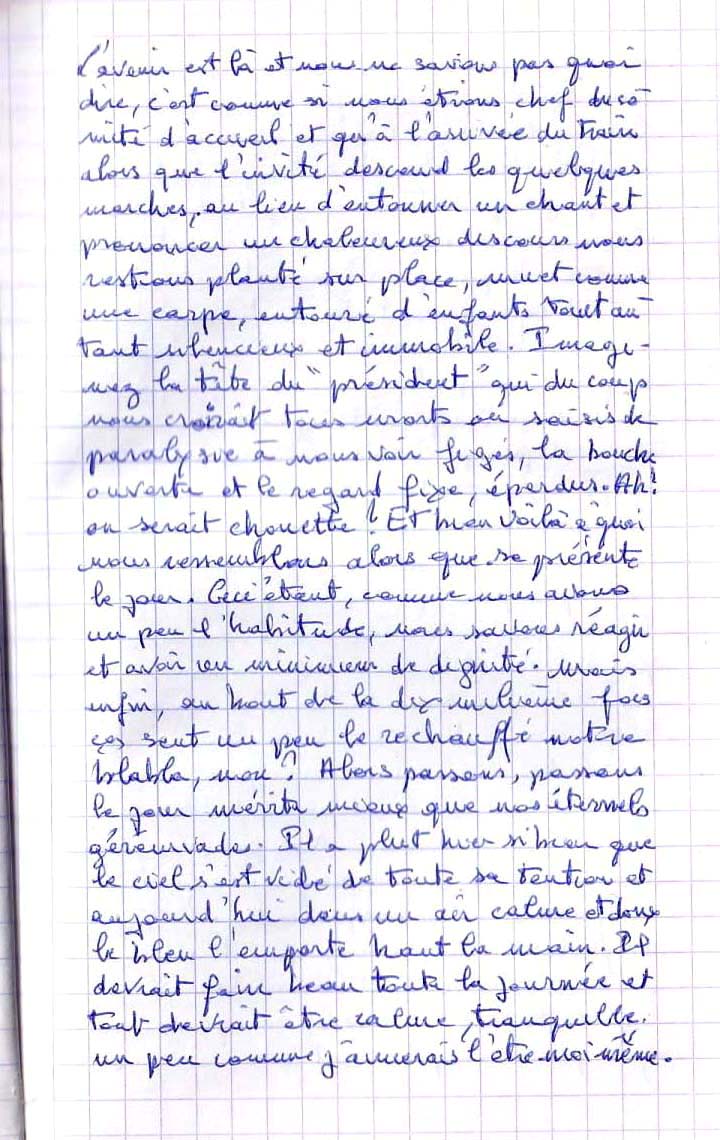 L'avenir est là et nous ne savions pas quoi
dire, c'est comme si nous étions chef du co-
mité d'accueil et qu'à l'arrivée du train
alors que l'invité descend les quelques
marches, au lieu d'entonner un chant et
prononcer un chaleureux discours nous
restions planté sur place, muet comme
une carpe, entouré d'enfants tout au-
tant silencieux et immobile. Imagi-
nez la tête du "président" qui du coup
nous croirait tous morts ou saisis de
paralysie à nous voir figés, la bouche
ouverte et le regard fixe, éperdus. Ah!
on serait chouette! Et bien voilà à quoi
nous ressemblons alors que se présente
le jour. Ceci étant, comme nous avons
un peu l'habitude, nous savons réagir
et avoir un minimum de dignité. Mais
enfin, au bout de la dix millième fois
ça sent un peu le rechauffé notre
blabla, non? Alors passons, passons
le jour mérite mieux que nos éternels
gérémiades. Il a plut hier si bien que
le ciel s'est vidé de toute sa tention et
aujourd'hui dans un air calme et doux
le bleu l'emporte haut la main. Il
devrait faire beau toute la journée et
tout devrait être calme, tranquille.
un peu comme j'aimerais l'être moi même.